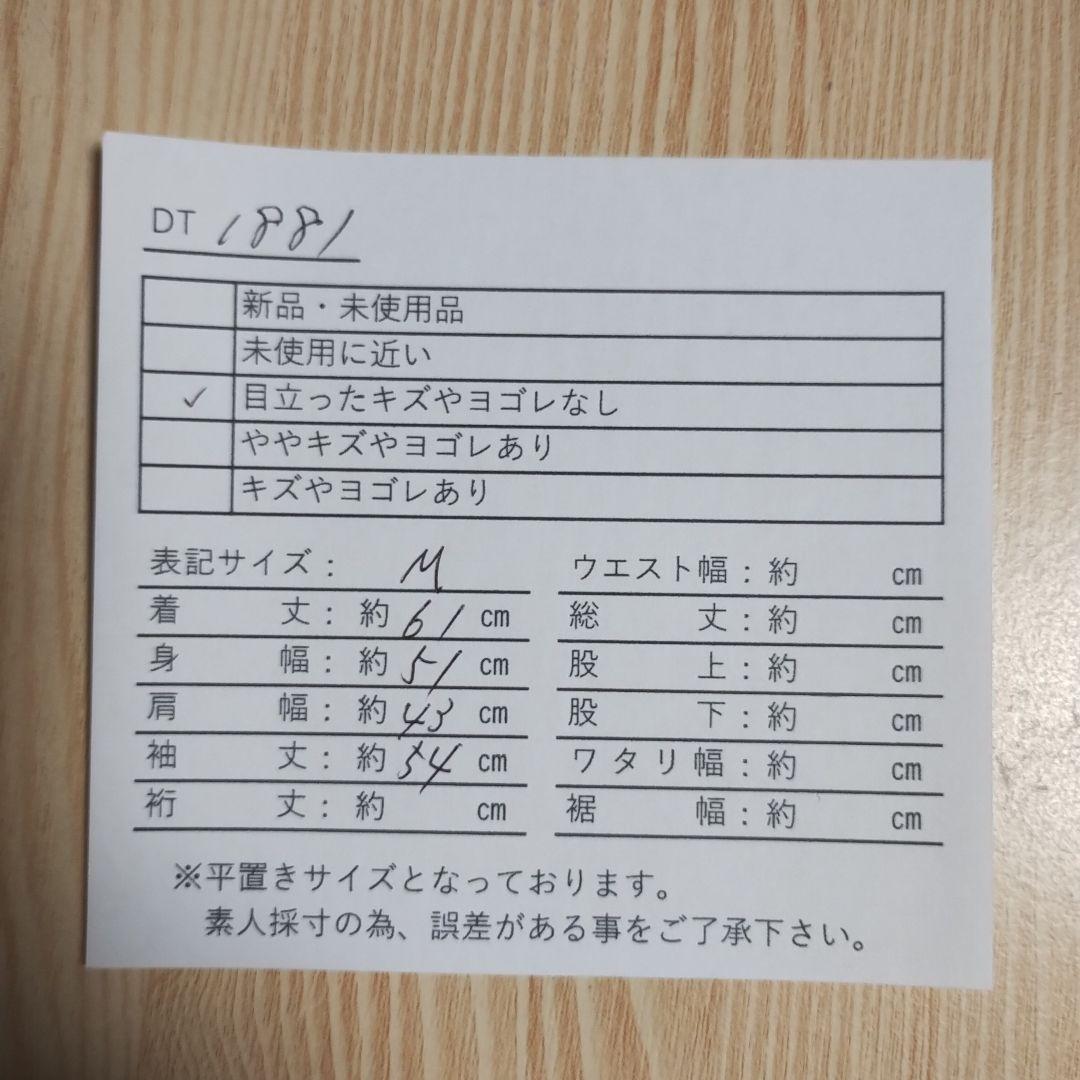 DT 1881
新品・未使用品
未使用に近い
✓ 目立ったキズやヨゴレなし
ややキズやヨゴレあり
キズやヨゴレあり
表記サイズ： M
着丈：約61cm
身幅：約51cm
肩幅：約43cm
袖丈：約54cm
裄丈：約 cm
ウエスト幅：約 cm
総丈：約 cm
股上：約 cm
股下：約 cm
ワタリ幅：約 cm
裾幅：約 cm
※平置きサイズとなっております。
素人採寸の為、誤差がある事をご了承下さい。